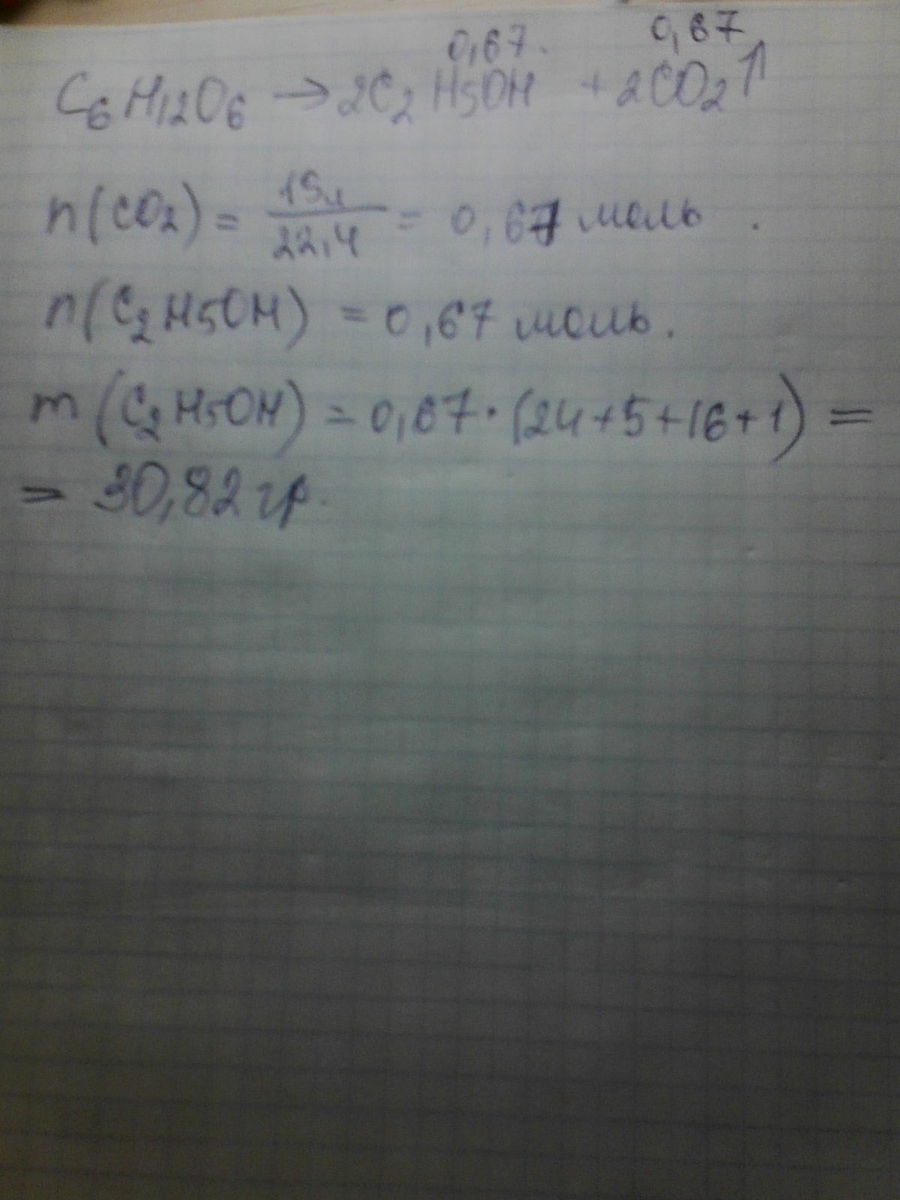 0,67. 0,67
C6H12O6 → 2C2H5OH + 2CO2↑
n(CO2) = 15л/22,4 = 0,67 моль.
n(C2H5OH) = 0,67 моль.
m(C2H5OH) = 0,67·(24+5+16+1) =
= 30,82 гр.